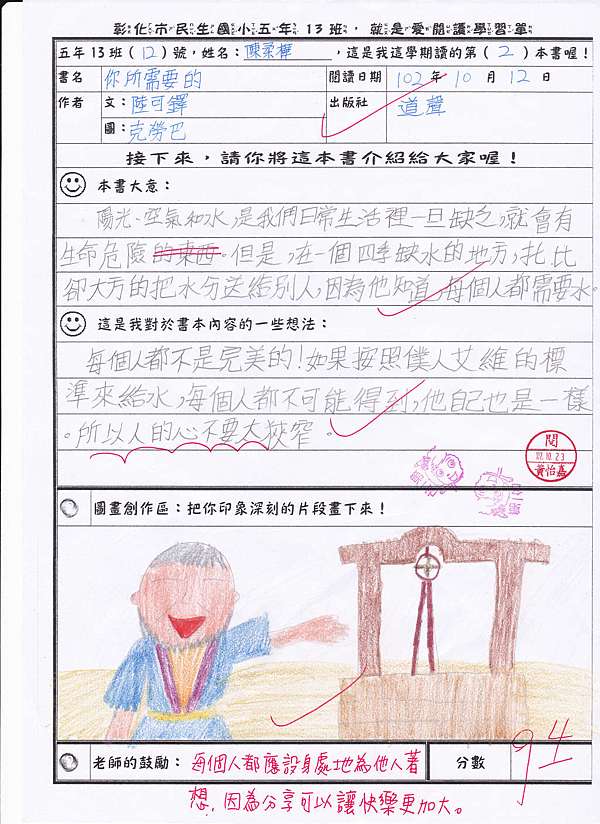 彰化市民生國小五年13班，就是愛閱讀學習單
五年13班（12）號，姓名：陳柔樺，這是我這學期讀的第（2）本書喔！
書名 你所需要的 閱讀日期 102年10月12日
作者 文：陸可鐸 出版社 道聲
圖：克勞巴
接下來，請你將這本書介紹給大家喔！
本書大意：
陽光、空氣和水，是我們日常生活裡一旦缺乏，就會有
生命危險的東西。但是，在一個四季缺水的地方，托比
卻大方的把水分送給別人，因為他知道，每個人都需要水。
這是我對於書本內容的一些想法：
每個人都不是完美的！如果按照僕人艾維的標
準來給水，每個人都不可能得到，他自己也是一樣
。所以人的心不要太狹窄。
閱
102.10.23
黃怡嘉
圖畫創作區：把你印象深刻的片段畫下來！
老師的鼓勵：每個人都應設身處地為他人著 分數 94
想，因為分享可以讓快樂更加大。